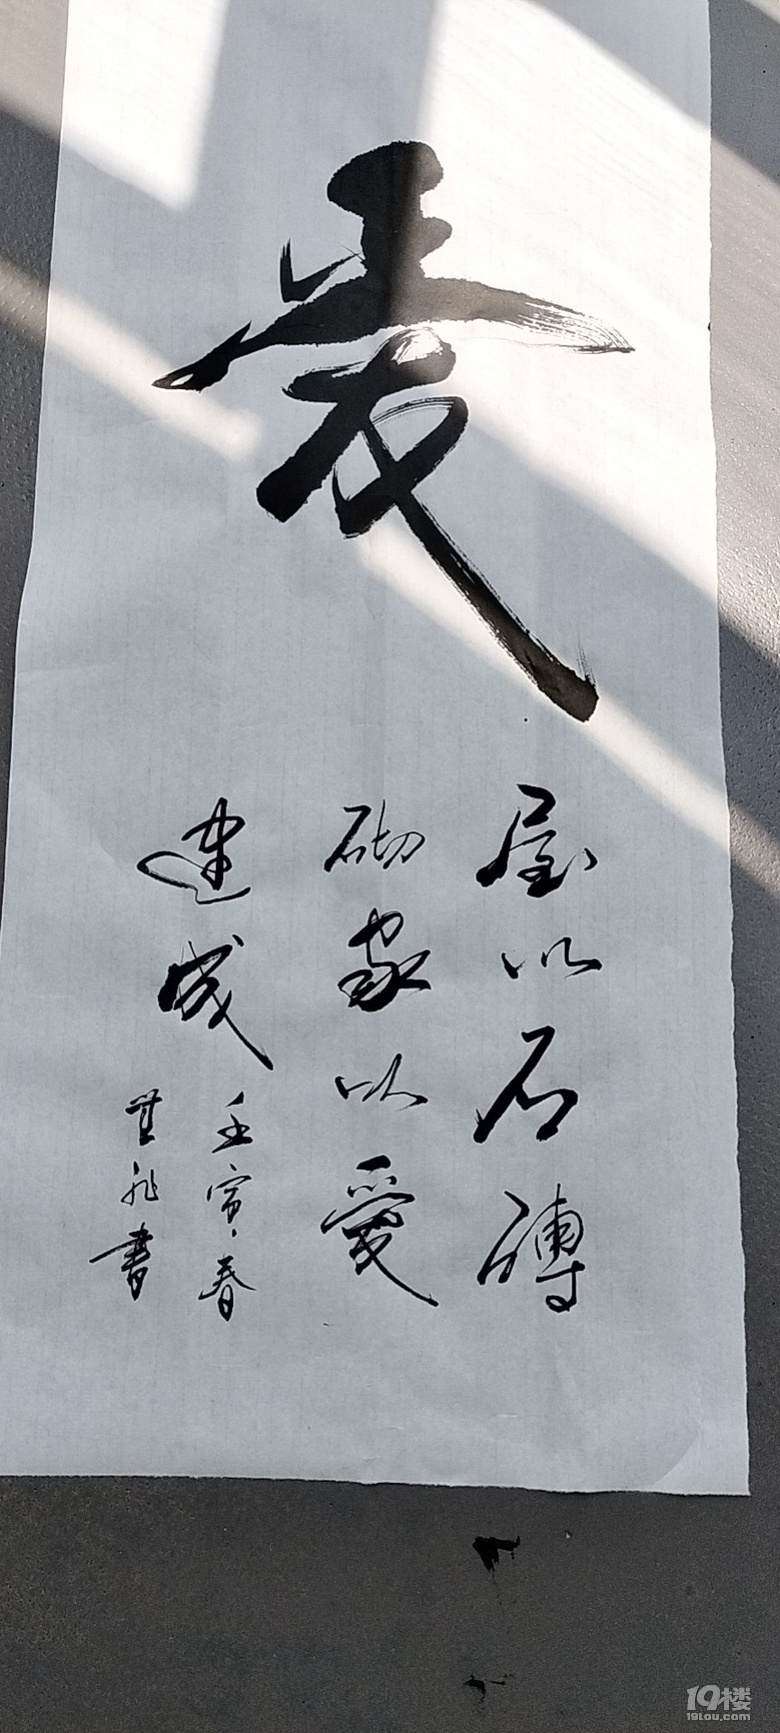 爱
屋以石磚
砌家以愛
建成
壬寅春
書
19楼
19lou.com